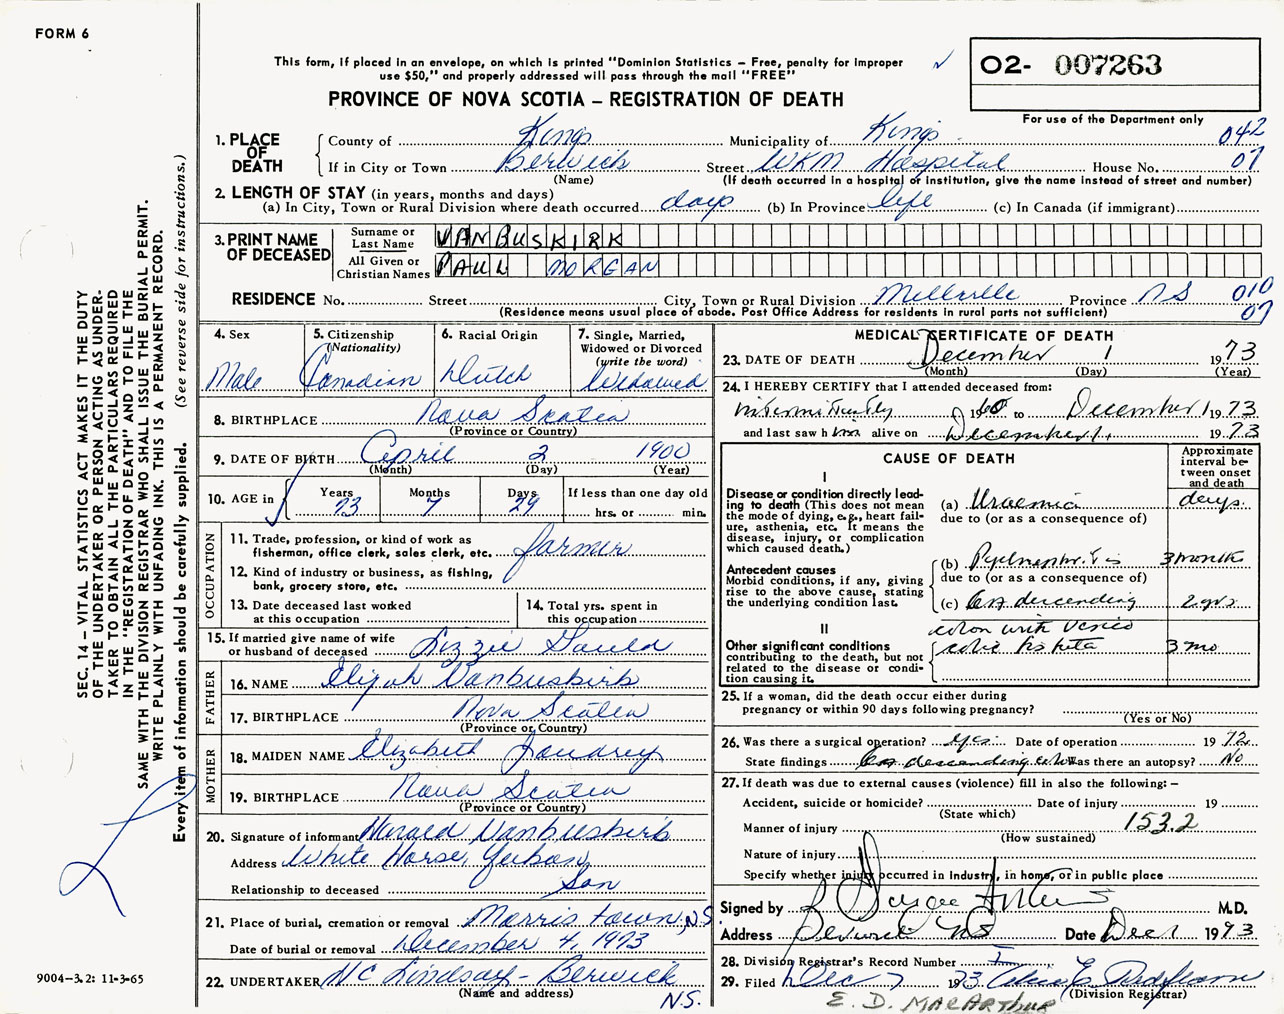 FORM 6
This form, if placed in an envelope, on which is printed "Dominion Statistics – Free, penalty for improper
use $50," and properly addressed will pass through the mail "FREE"
PROVINCE OF NOVA SCOTIA – REGISTRATION OF DEATH
02- 007263
For use of the Department only
SEC. 14 – VITAL STATISTICS ACT MAKES IT THE DUTY
OF THE UNDERTAKER OR PERSON ACTING AS UNDER-
TAKER TO OBTAIN ALL THE PARTICULARS REQUIRED
IN THE "REGISTRATION OF DEATH" AND TO FILE THE
SAME WITH THE DIVISION REGISTRAR WHO SHALL ISSUE THE BURIAL PERMIT.
WRITE PLAINLY WITH UNFADING INK. THIS IS A PERMANENT RECORD.
Every item of information should be carefully supplied. (See reverse side for instructions.)
1. PLACE OF DEATH
County of Kings Municipality of Kings 042
If in City or Town Berwick Street WKM Hospital House No. 07
(Name) (If death occurred in a hospital or institution, give the name instead of street and number)
2. LENGTH OF STAY (in years, months and days)
(a) In City, Town or Rural Division where death occurred days (b) In Province life (c) In Canada (if immigrant)
3. PRINT NAME OF DECEASED
Surname or Last Name VANBUSKIRK
All Given or Christian Names PAUL MORGAN
RESIDENCE No. Street City, Town or Rural Division Millville Province NS 010
(Residence means usual place of abode. Post Office Address for residents in rural parts not sufficient) 07
4. Sex Male
5. Citizenship (Nationality) Canadian
6. Racial Origin Dutch
7. Single, Married, Widowed or Divorced (write the word) Widowed
8. BIRTHPLACE Nova Scotia
(Province or Country)
9. DATE OF BIRTH April 2 1900
(Month) (Day) (Year)
10. AGE in Years 73 Months 7 Days 29 If less than one day old hrs. or min.
OCCUPATION
11. Trade, profession, or kind of work as
fisherman, office clerk, sales clerk, etc. farmer
12. Kind of industry or business, as fishing,
bank, grocery store, etc.
13. Date deceased last worked
at this occupation
14. Total yrs. spent in
this occupation
15. If married give name of wife
or husband of deceased Lizzie Gould
FATHER
16. NAME Elijah Vanbuskirk
17. BIRTHPLACE Nova Scotia
(Province or Country)
MOTHER
18. MAIDEN NAME Elizabeth
19. BIRTHPLACE Nova Scotia
(Province or Country)
20. Signature of informant Harold Vanbuskirk
Address White Horse, Yukon
Relationship to deceased Son
21. Place of burial, cremation or removal Morristown, N.S.
Date of burial or removal December 4, 1973
22. UNDERTAKER H C Lindsay – Berwick
(Name and address) N.S.
9004–3.2: 11-3-65
MEDICAL CERTIFICATE OF DEATH
23. DATE OF DEATH December 1 1973
(Month) (Day) (Year)
24. I HEREBY CERTIFY that I attended deceased from:
intermittently 1960 to December 1 1973
and last saw him alive on December 1, 1973
CAUSE OF DEATH
Approximate interval between onset and death
I
Disease or condition directly lead-
ing to death (This does not mean
the mode of dying, e.g., heart fail-
ure, asthenia, etc. It means the
disease, injury, or complication
which caused death.)
(a) Uraemia days
due to (or as a consequence of)
Antecedent causes
Morbid conditions, if any, giving
rise to the above cause, stating
the underlying condition last.
(b) Pyelonephritis 3 months
due to (or as a consequence of)
(c) Ca descending 2 yrs
colon with vesico
II
Other significant conditions
contributing to the death, but not
related to the disease or condi-
tion causing it.
colic fistula 3 mo
25. If a woman, did the death occur either during
pregnancy or within 90 days following pregnancy?
(Yes or No)
26. Was there a surgical operation? yes Date of operation 1972
State findings Ca descending colon Was there an autopsy? No
27. If death was due to external causes (violence) fill in also the following: –
Accident, suicide or homicide? Date of injury 19
(State which)
Manner of injury 153.2
(How sustained)
Nature of injury
Specify whether injury occurred in industry, in home, or in public place
Signed by M.D.
Address Berwick NS Date Dec 1 1973
28. Division Registrar's Record Number
29. Filed Dec 7 1973
(Division Registrar)
E. D. MACARTHUR